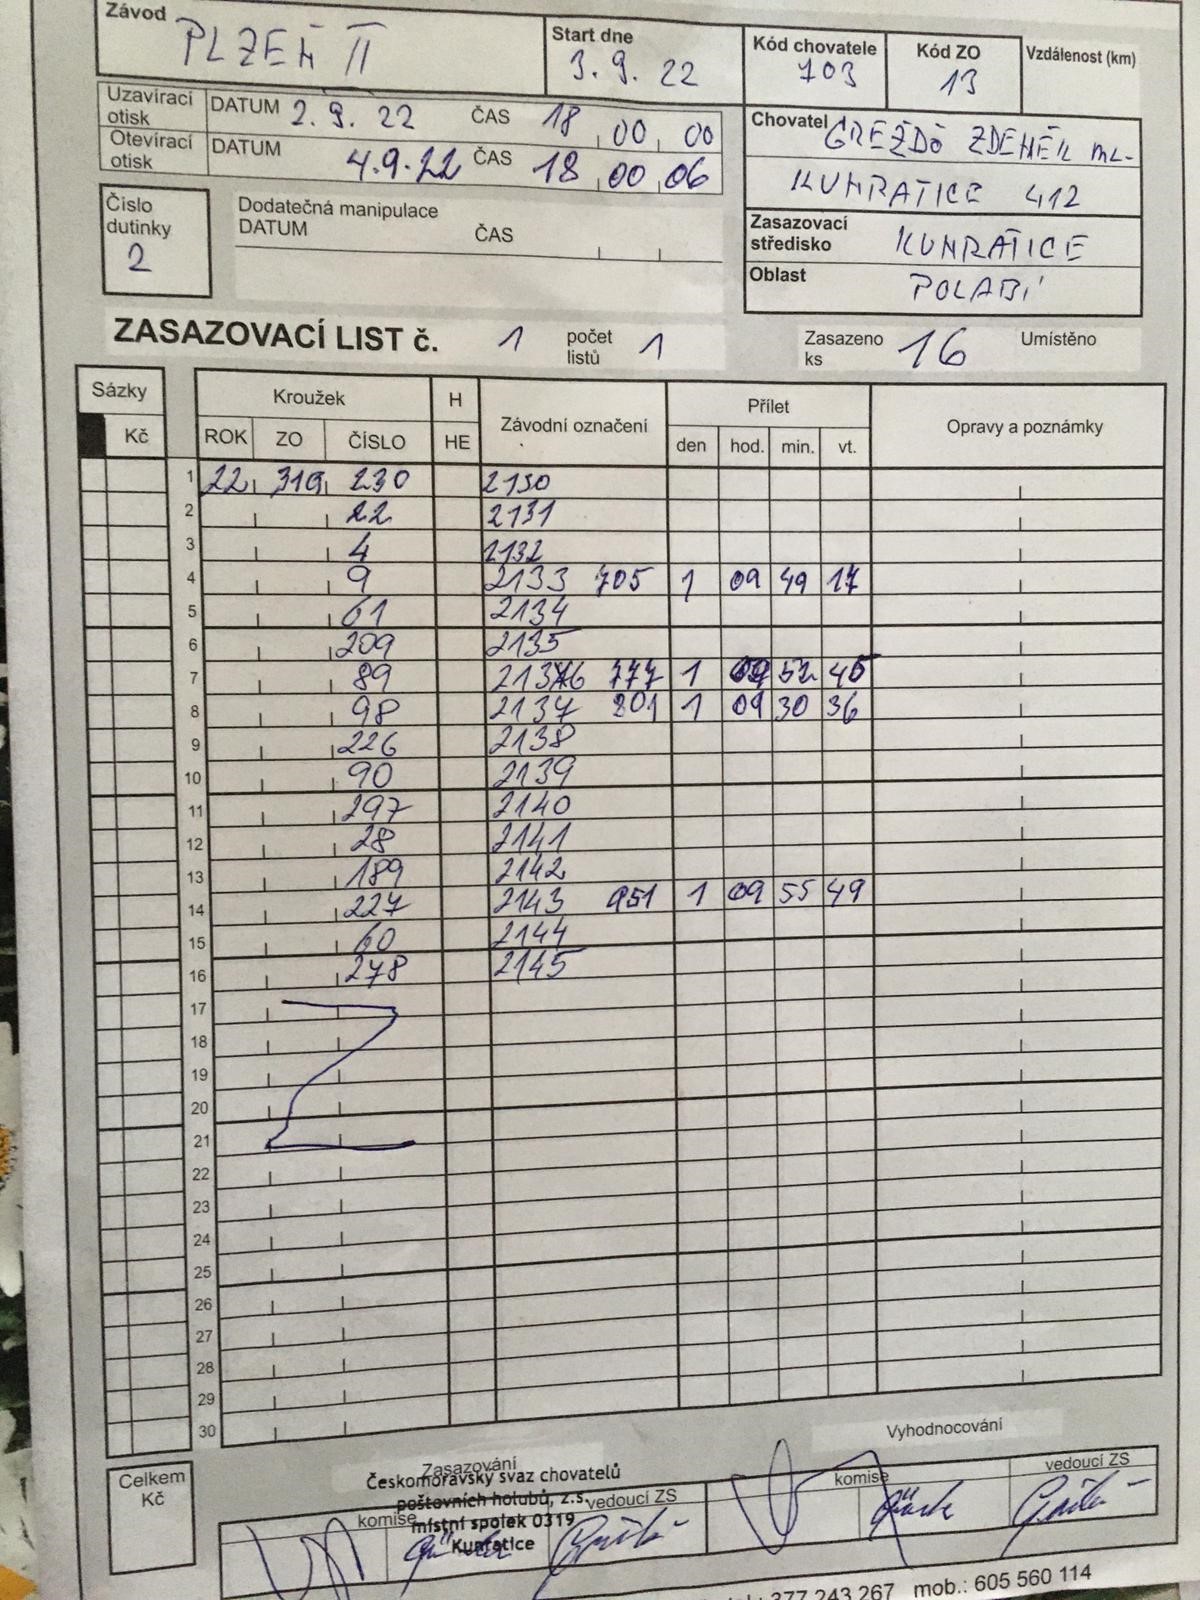 Závod PLZEŇ II
Start dne 3. 9. 22
Kód chovatele 703
Kód ZO 13
Vzdálenost (km)
Uzavírací otisk DATUM 2. 9. 22 ČAS 18 00 00
Otevírací otisk DATUM 4.9.22 ČAS 18 00 06
Chovatel GREŽĎO ZDENĚK ML.
KUNRATICE 412
Zasazovací středisko KUNRATICE
Oblast POLABÍ
Číslo dutinky 2
Dodatečná manipulace
DATUM ČAS
ZASAZOVACÍ LIST č. 1 počet listů 1
Zasazeno ks 16 Umístěno
Sázky Kroužek H Závodní označení Přílet Opravy a poznámky
Kč ROK ZO ČÍSLO HE den hod. min. vt.
1 22 319 230 2130
2 22 2131
3 4 2132
4 9 2133 705 1 09 49 17
5 61 2134
6 209 2135
7 89 2136 777 1 09 52 45
8 98 2137 801 1 09 30 36
9 226 2138
10 90 2139
11 297 2140
12 28 2141
13 189 2142
14 227 2143 951 1 09 55 49
15 60 2144
16 278 2145
17
18
19
20
21
22
23
24
25
26
27
28
29
30
Celkem Kč
Zasazování
Vyhodnocování
Českomoravský svaz chovatelů
poštovních holubů, z.s.
místní spolek 0319
Kunratice
komise vedoucí ZS
komise vedoucí ZS
377 243 267 mob.: 605 560 114